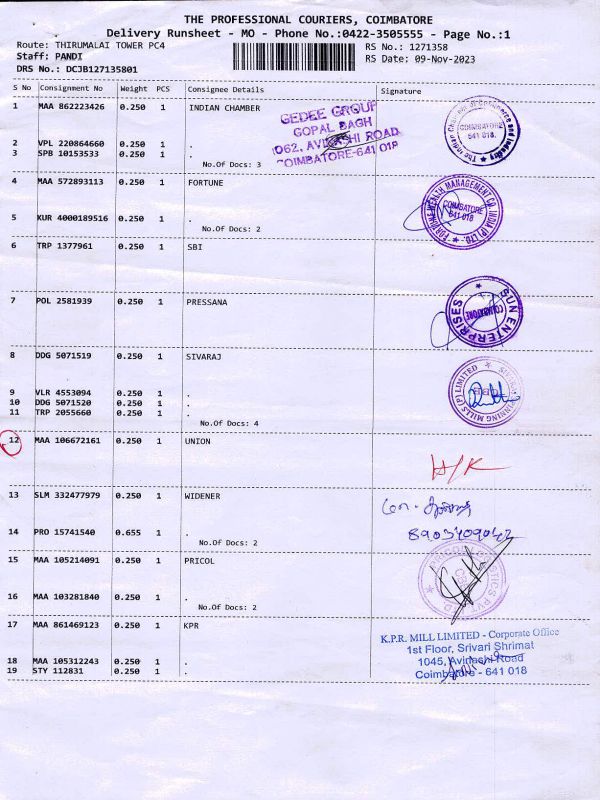 THE PROFESSIONAL COURIERS, COIMBATORE
Delivery Runsheet - MO - Phone No.:0422-3505555 - Page No.:1
Route: THIRUMALAI TOWER PC4
RS No.: 1271358
Staff: PANDI
RS Date: 09-Nov-2023
DRS No.: DCJB127135801
S No Consignment No Weight PCS Consignee Details Signature
1 MAA 862223426 0.250 1 INDIAN CHAMBER
GEDEE GROUP
GOPAL BAGH
1062, AVINASHI ROAD
COIMBATORE-641 018
The Indian Chamber of Commerce and Industry
COIMBATORE
641 018.
2 VPL 220864660 0.250 1 .
3 SPB 10153533 0.250 1 .
No.Of Docs: 3
4 MAA 572893113 0.250 1 FORTUNE
FORTUNE WEALTH MANAGEMENT CO. INDIA (P) LTD.
COIMBATORE
641 018
5 KUR 4000189516 0.250 1 .
No.Of Docs: 2
6 TRP 1377961 0.250 1 SBI
7 POL 2581939 0.250 1 PRESSANA
SUN ENTERPRISES
COIMBATORE
8 DDG 5071519 0.250 1 SIVARAJ
SPINNING MILLS (P) LIMITED
9 VLR 4553094 0.250 1 .
10 DDG 5071520 0.250 1 .
11 TRP 2055660 0.250 1 .
No.Of Docs: 4
12 MAA 106672161 0.250 1 UNION
H/K
13 SLM 332477979 0.250 1 WIDENER
14 PRO 15741540 0.655 1 .
No.Of Docs: 2
15 MAA 105214091 0.250 1 PRICOL
16 MAA 103281840 0.250 1 .
No.Of Docs: 2
17 MAA 861469123 0.250 1 KPR
K.P.R. MILL LIMITED - Corporate Office
1st Floor, Srivari Shrimat
1045, Avinashi Road
Coimbatore - 641 018
18 MAA 105312243 0.250 1 .
19 STY 112831 0.250 1 .